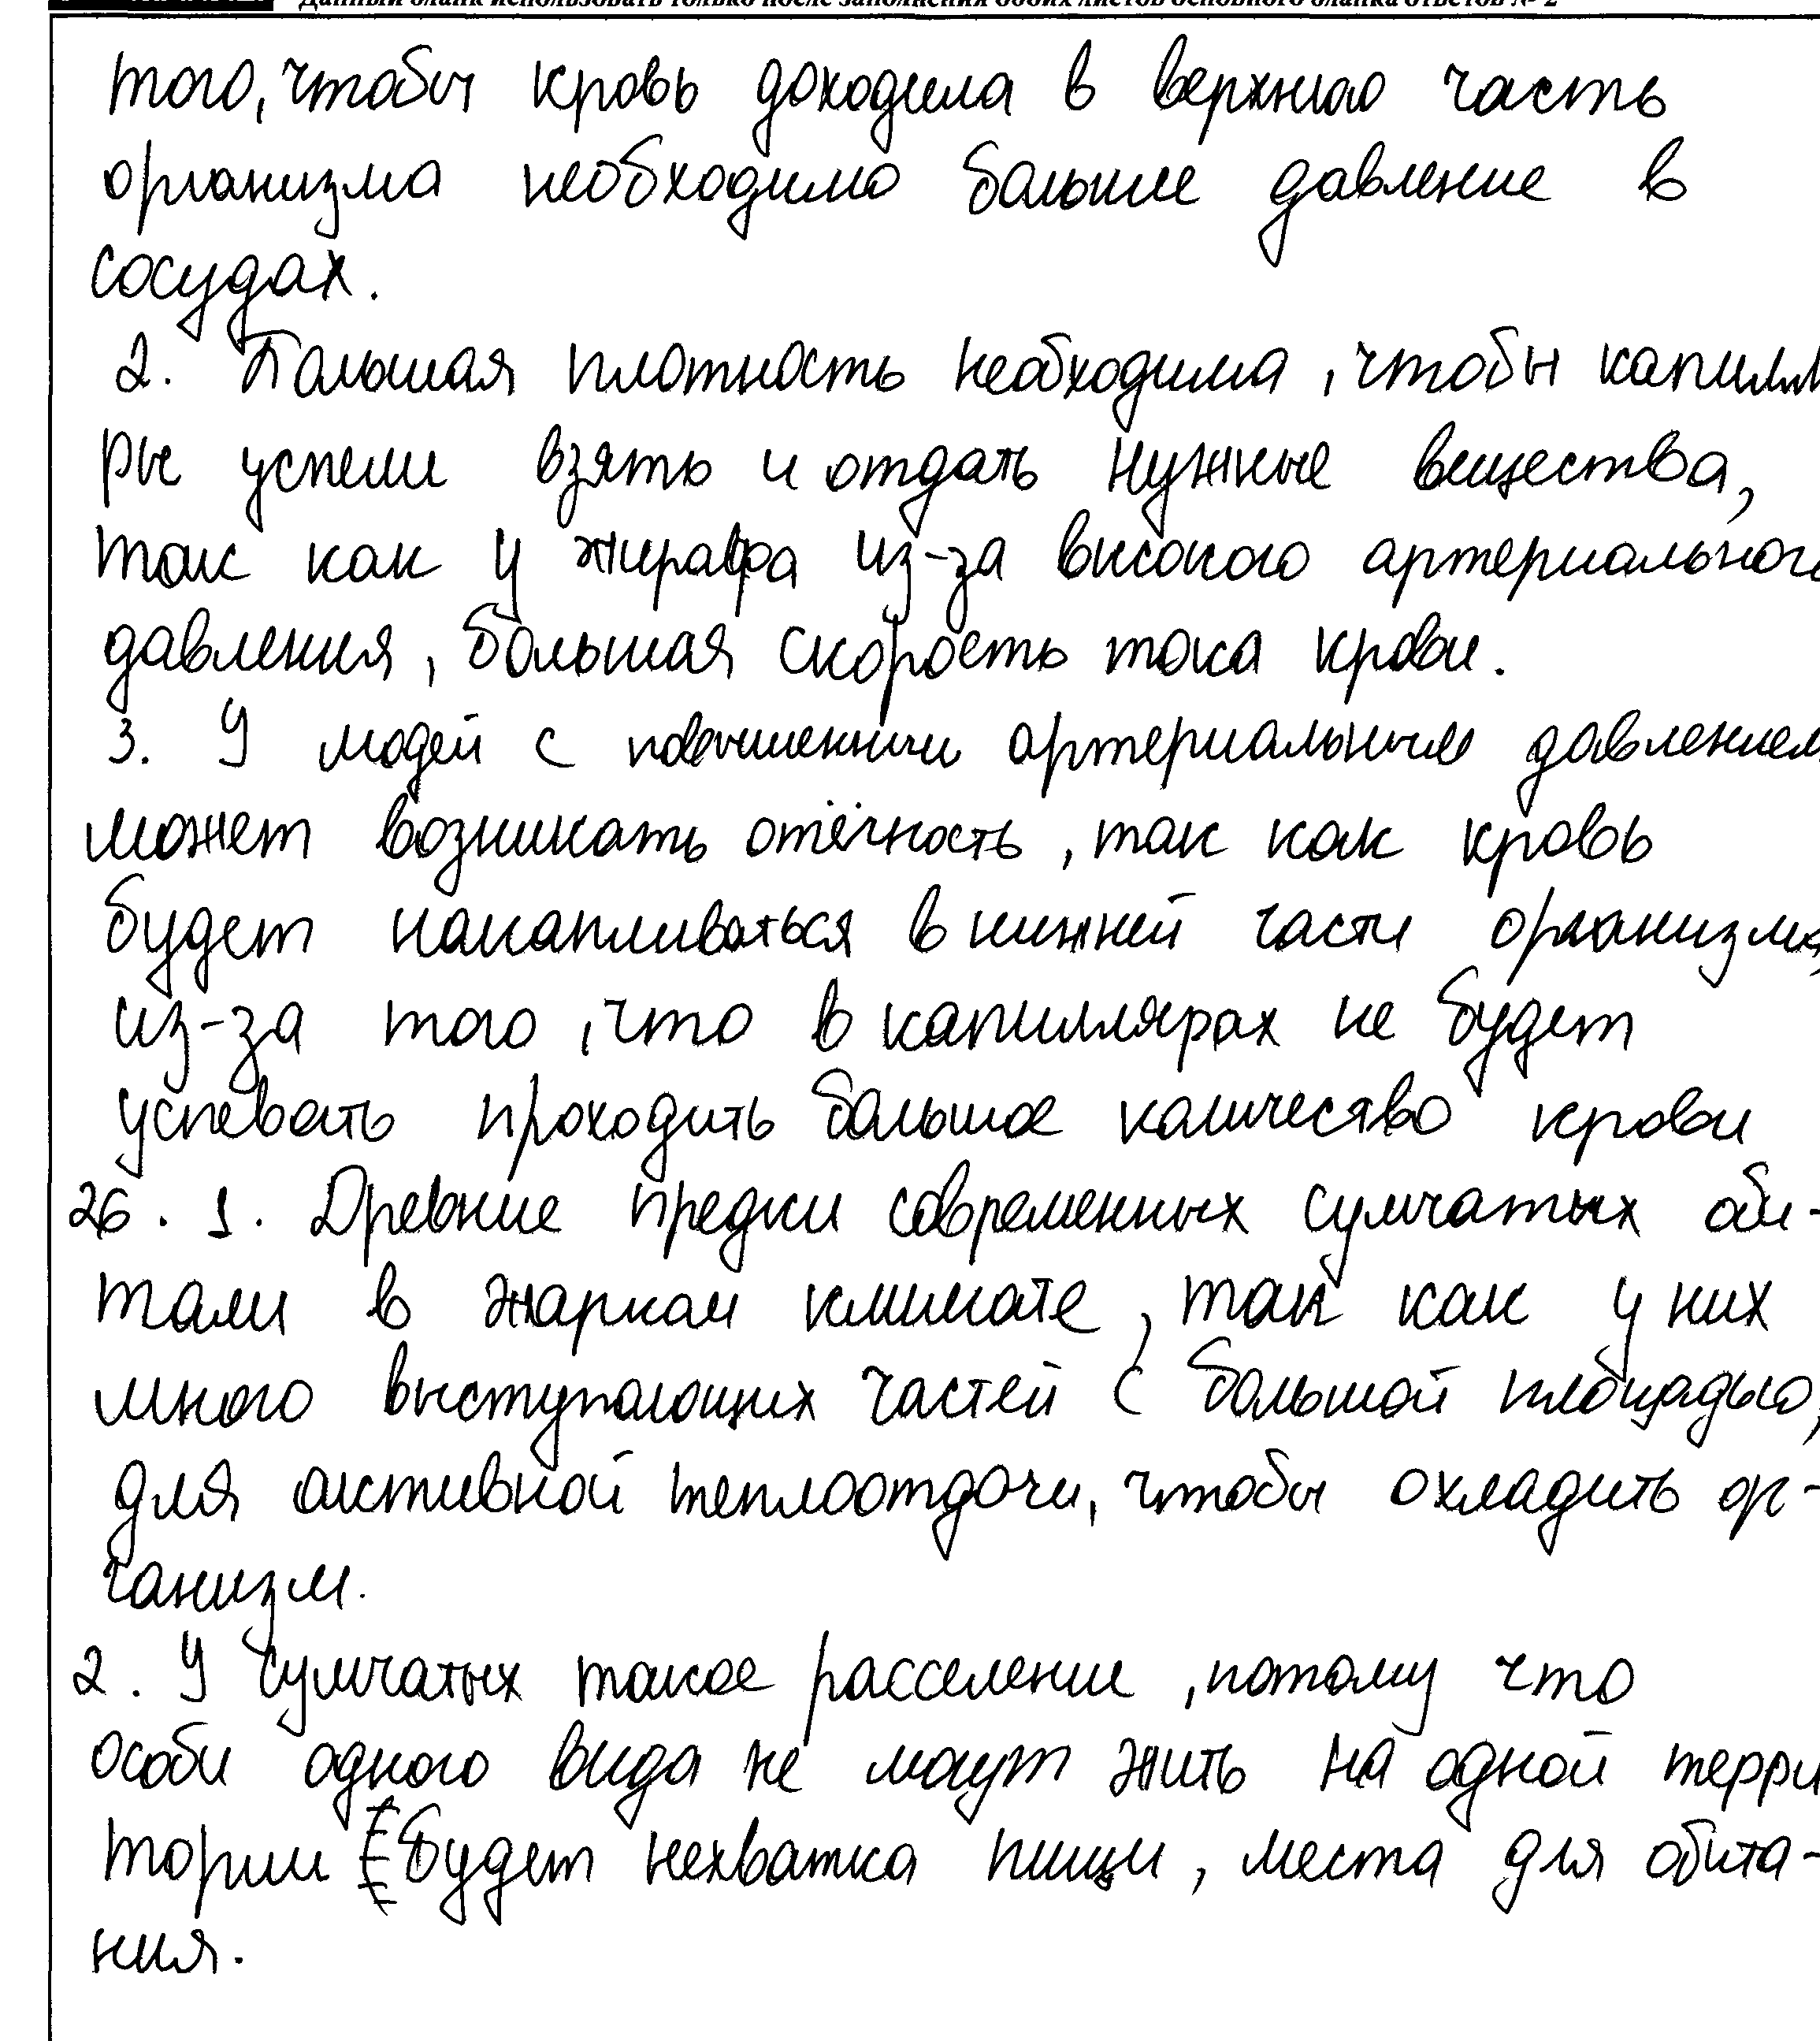 Данный бланк использовать только после заполнения обоих листов основного бланка ответов № 2
того, чтобы кровь доходила в верхнюю часть
организма необходимо больше давление в
сосудах.
2. Большая плотность необходима, чтобы капилля
ры успели взять и отдать нужные вещества,
так как у жирафа из-за высокого артериального
давления, большая скорость тока крови.
3. У людей с повышенным артериальным давлением
может возникать отёчность, так как кровь
будет накапливаться в нижней части организма,
из-за того, что в капиллярах не будет
успевать проходить большое количество крови
26. 1. Древние предки современных сумчатых оби-
тали в жарком климате, так как у них
много выступающих частей с большой площадью,
для активной теплоотдачи, чтобы охладить ор-
ганизм.
2. У сумчатых такое расселение, потому что
особи одного вида не могут жить на одной терри
тории будет нехватка пищи, места для обита-
ния.